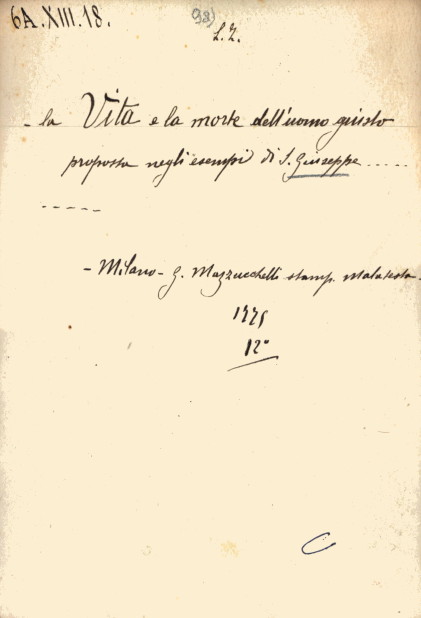 6A.XIII.18.
98)
L.Z.
- la Vita e la morte dell'uomo giusto
proposta negli esempi di S. Giuseppe .....
-----
- Milano - G. Mazzucchelli stamp. Malatesta -
1775
12°
C